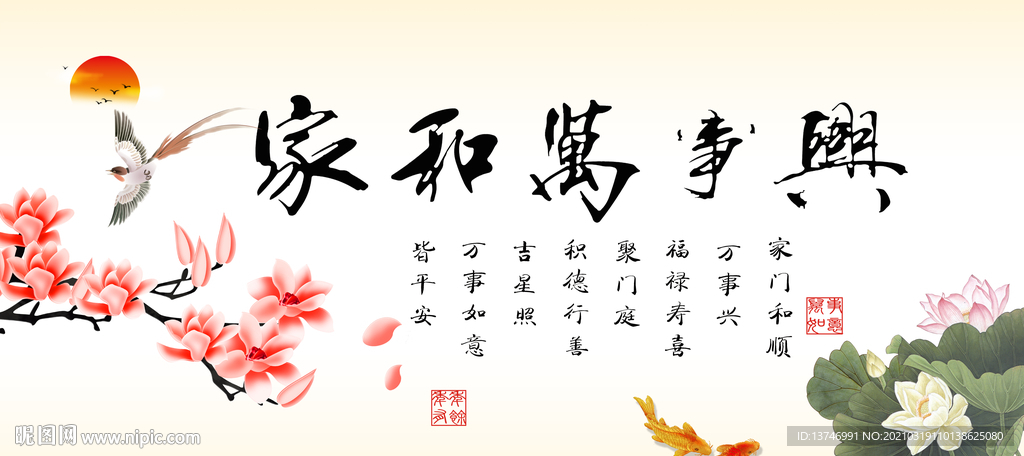 家和萬事興
家门和顺
万事兴
福禄寿喜
聚门庭
积德行善
吉星照
万事如意
皆平安
萬事如意
年年有餘
昵图网 www.nipic.com
ID:13746991 NO:20210319110138625080